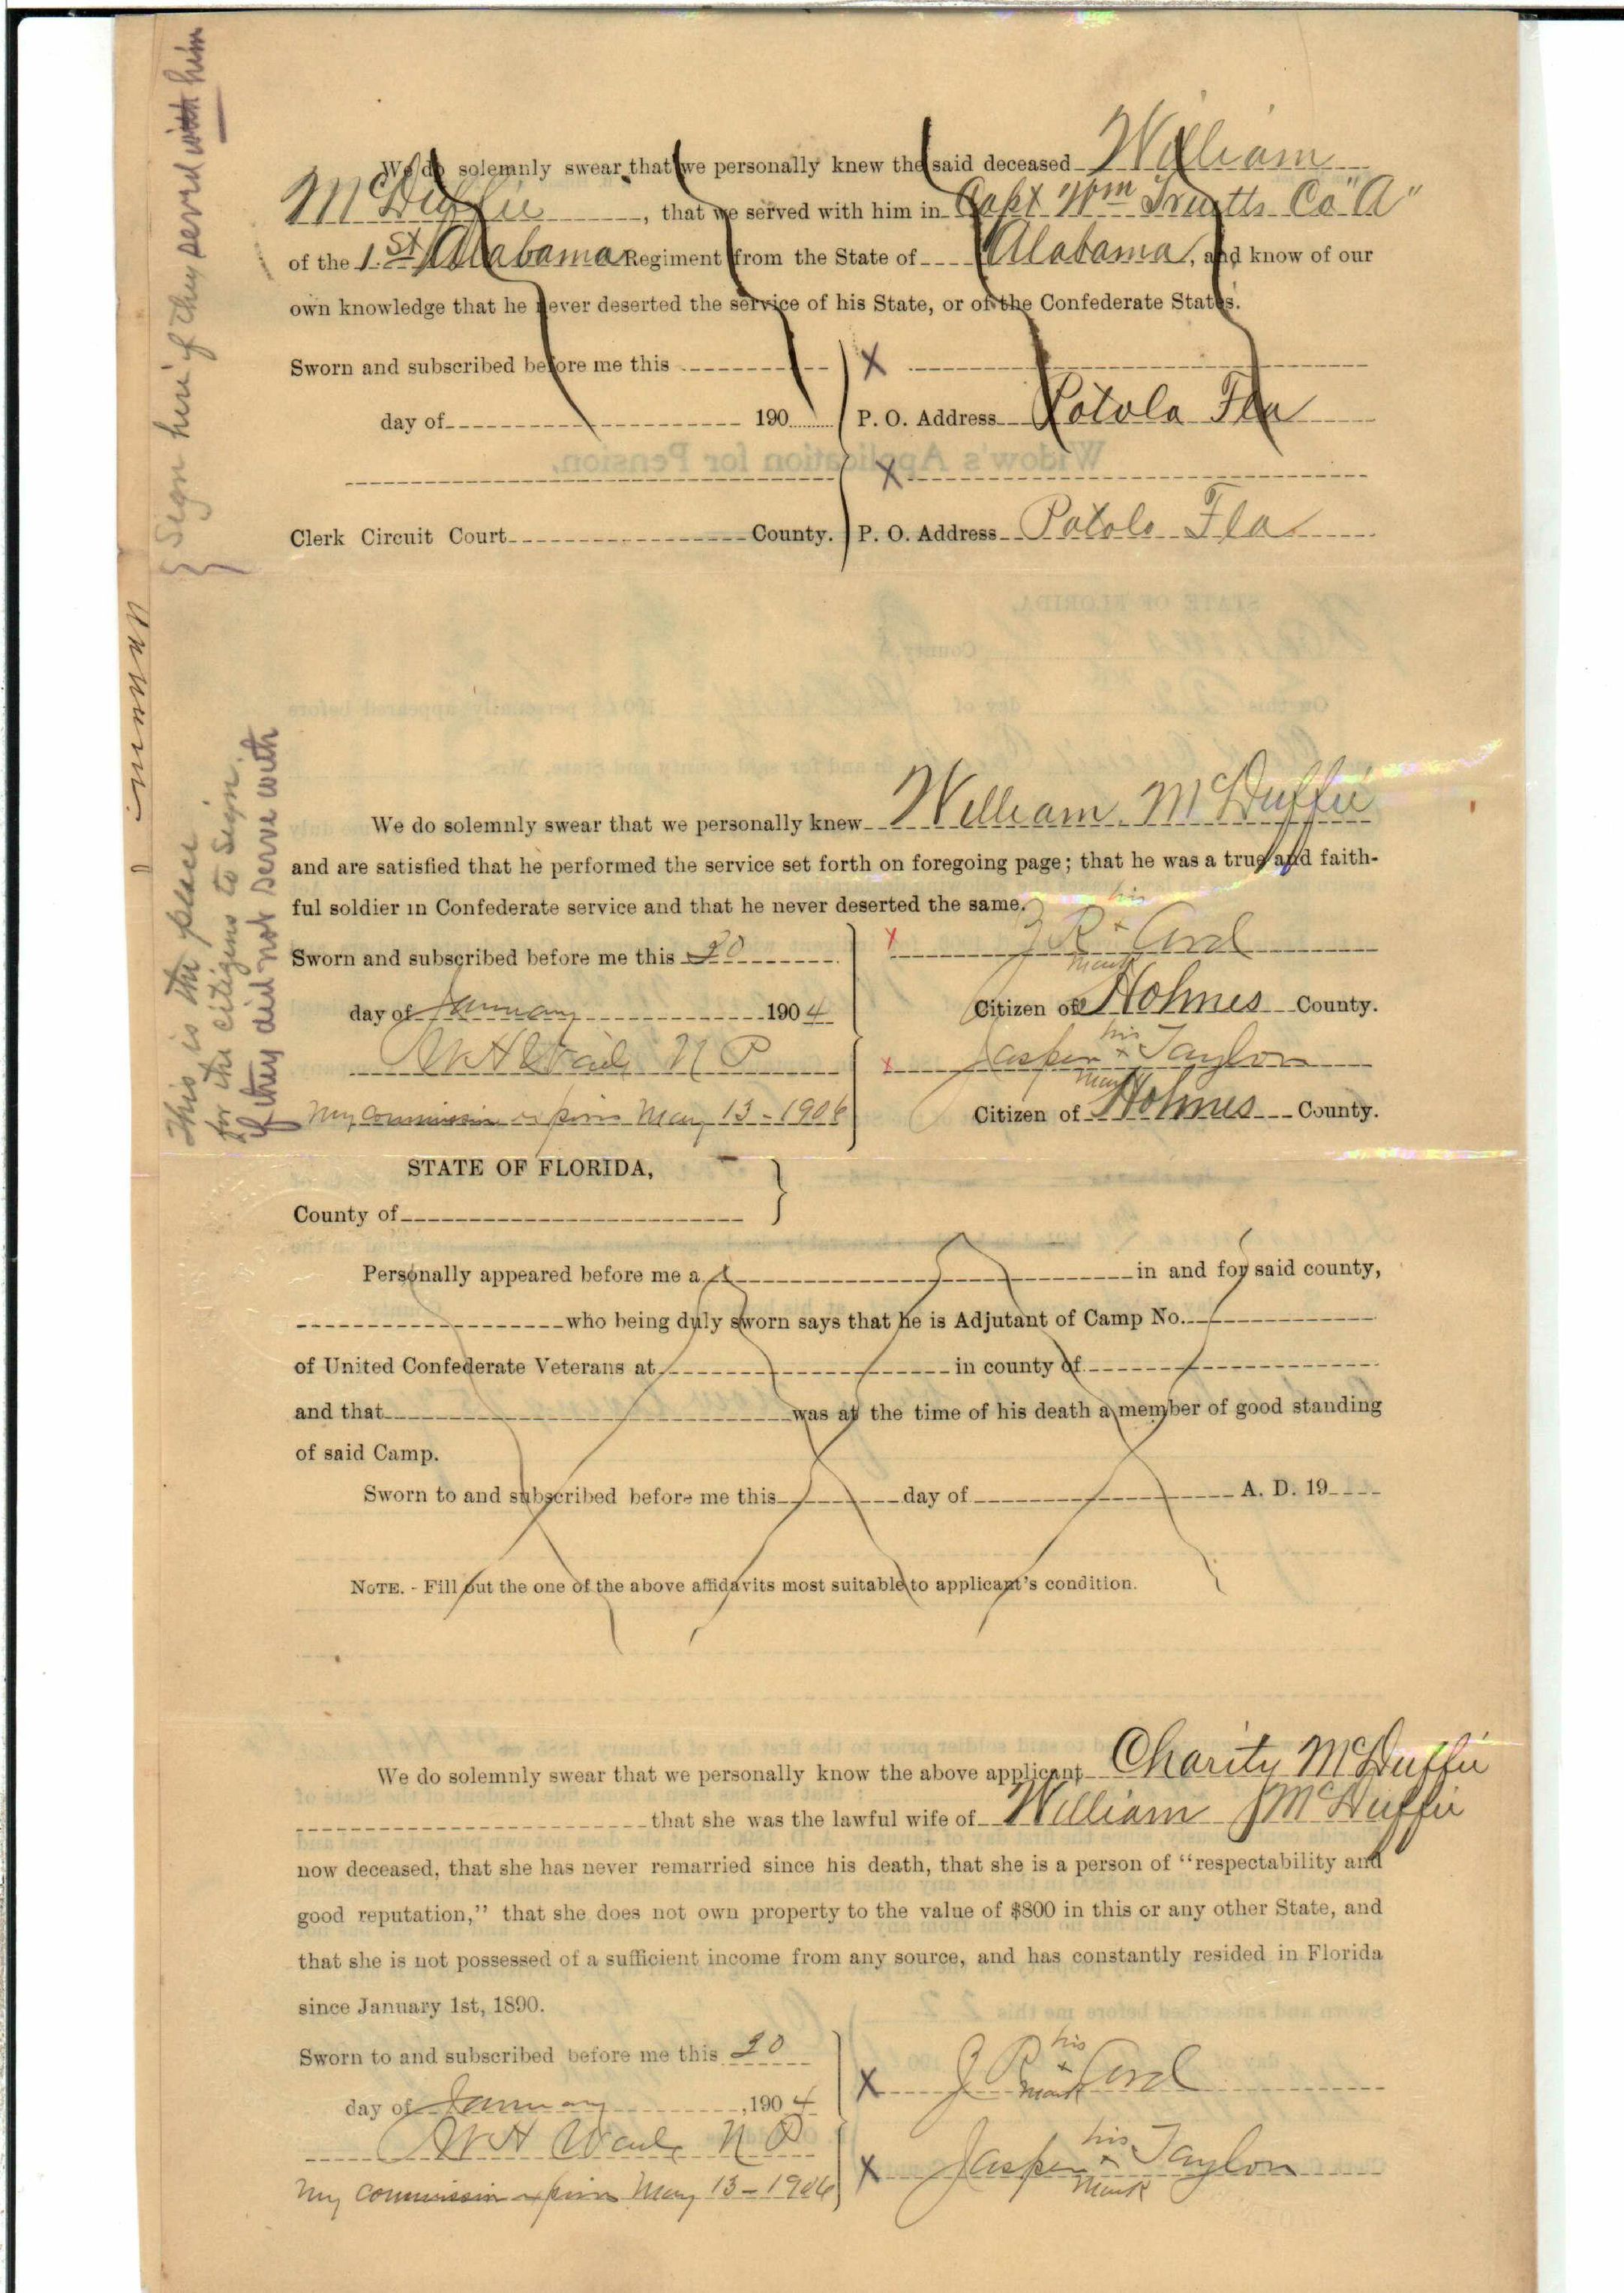 Sign here if they served with him
We do solemnly swear that we personally knew the said deceased William
McDuffie, that we served with him in Capt Wm Truitts Co "A"
of the 1st Alabama Regiment from the State of Alabama, and know of our
own knowledge that he never deserted the service of his State, or of the Confederate States.
Sworn and subscribed before me this X
day of 190 P. O. Address Potolo Fla
Widow's Application for Pension.
X
Clerk Circuit Court County. P. O. Address Potolo Fla
STATE OF FLORIDA,
County
This is the place
for the citizens to sign.
if they did not serve with
We do solemnly swear that we personally knew William McDuffie
and are satisfied that he performed the service set forth on foregoing page; that he was a true and faith-
ful soldier in Confederate service and that he never deserted the same.
Sworn and subscribed before me this 20 x J R his x mark Cord
day of January 1904 Citizen of Holmes County.
N P x Jasper his x mark Taylor
My commission expires May 13-1906 Citizen of Holmes County.
STATE OF FLORIDA,
County of
Personally appeared before me a in and for said county,
who being duly sworn says that he is Adjutant of Camp No.
of United Confederate Veterans at in county of
and that was at the time of his death a member of good standing
of said Camp.
Sworn to and subscribed before me this day of A. D. 19
NOTE. - Fill out the one of the above affidavits most suitable to applicant's condition.
We do solemnly swear that we personally know the above applicant Charity McDuffie
that she was the lawful wife of William McDuffie
now deceased, that she has never remarried since his death, that she is a person of "respectability and
good reputation," that she does not own property to the value of $800 in this or any other State, and
that she is not possessed of a sufficient income from any source, and has constantly resided in Florida
since January 1st, 1890.
Sworn to and subscribed before me this 20 X J R his x mark Cord
day of January, 1904
N P X Jasper his x mark Taylor
My commission expires May 13-1906